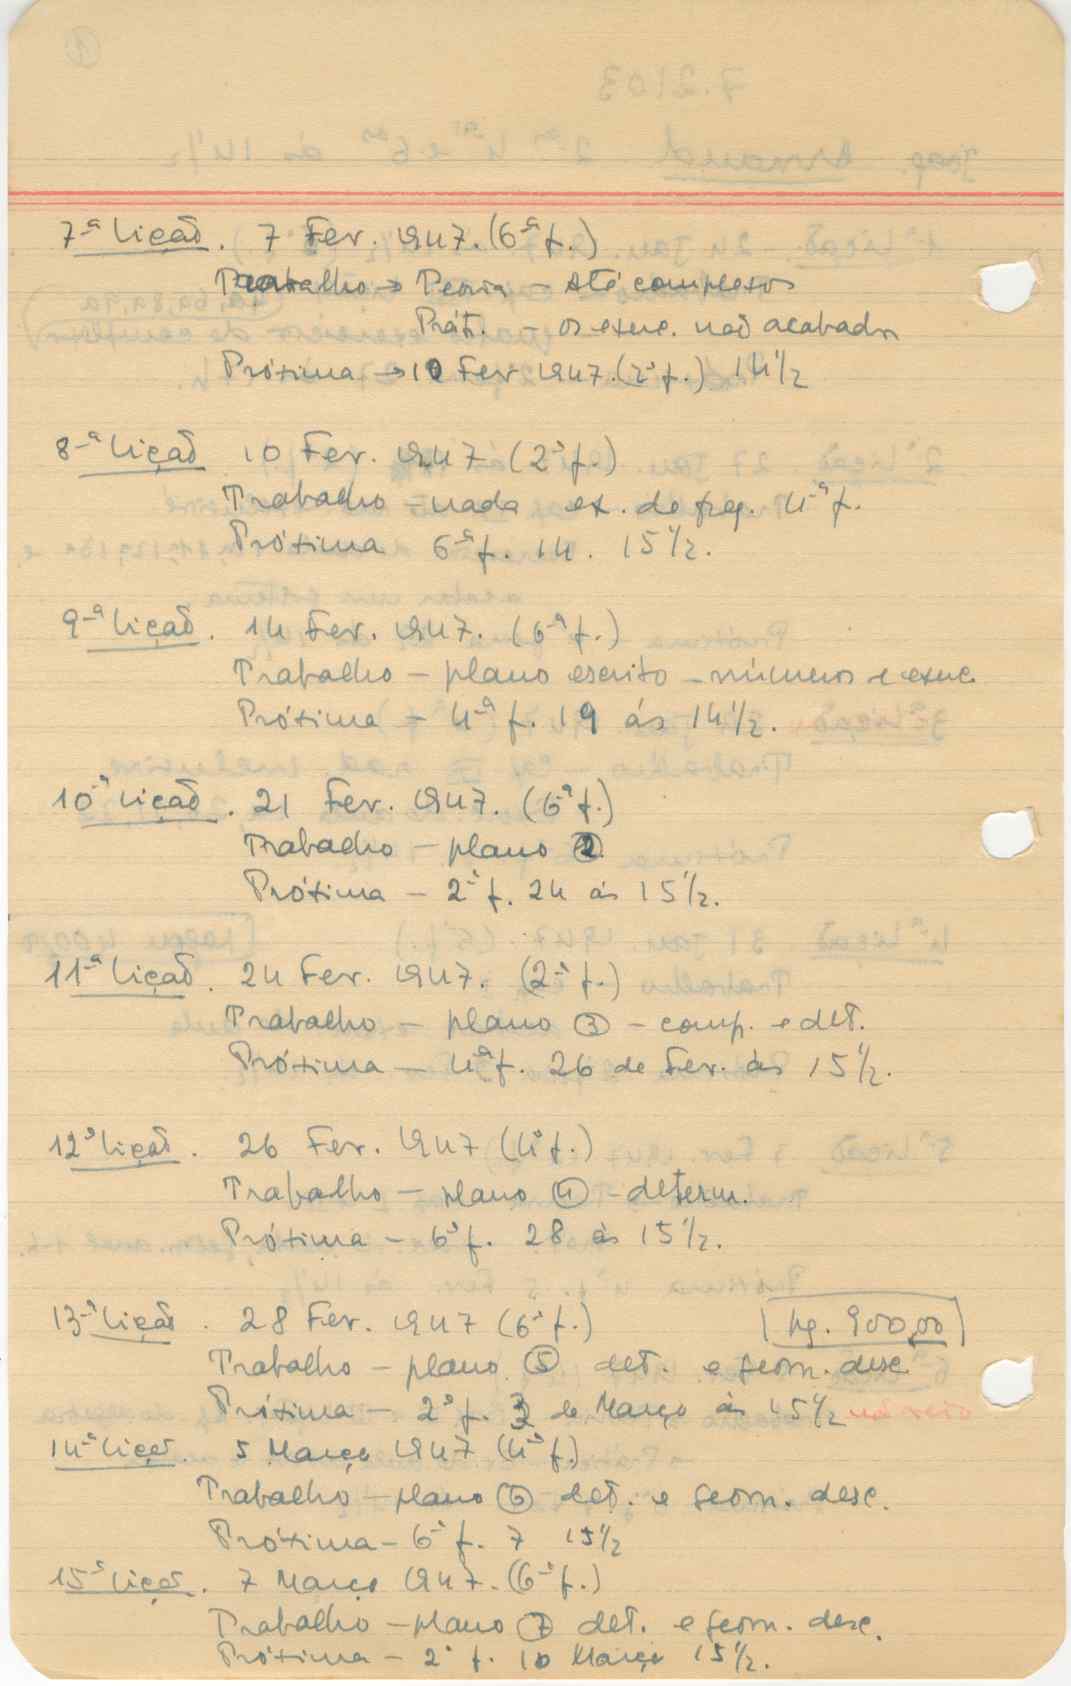 7ª Lição. 7 Fev. 1947. (6ª f.)
Trabalho → Teoria - até complexos
Prát. - os exerc. não acabados
Próxima → 10 Fev 1947. (2ª f.) 14½
8ª Lição 10 Fev. 1947 (2ª f.)
Trabalho - nada ex. de freq. 4ª f.
Próxima 6ª f. 14. 15½.
9ª Lição. 14 Fev. 1947. (6ª f.)
Trabalho - plano escrito - números e exerc.
Próxima - 4ª f. 19 ás 14½.
10ª Lição. 21 Fev. 1947. (6ª f.)
Trabalho - plano ②
Próxima - 2ª f. 24 ás 15½.
11ª Lição. 24 Fev. 1947. (2ª f.)
Trabalho - plano ③ - comp. e det.
Próxima - 4ª f. 26 de Fev. ás 15½.
12ª Lição. 26 Fev. 1947 (4ª f.)
Trabalho - plano ④ - determ.
Próxima - 6ª f. 28 ás 15½.
13ª Lição. 28 Fev. 1947 (6ª f.) pg. 900,00
Trabalho - plano ⑤ det. e geom. desc.
Próxima - 2ª f. 3 de Março ás 15½
14ª Lição. 5 Março 1947 (4ª f.)
Trabalho - plano ⑥ det. e geom. desc.
Próxima - 6ª f. 7 15½
15ª Lição. 7 Março 1947. (6ª f.)
Trabalho - plano ⑦ det. e geom. desc.
Próxima - 2ª f. 10 Março 15½.